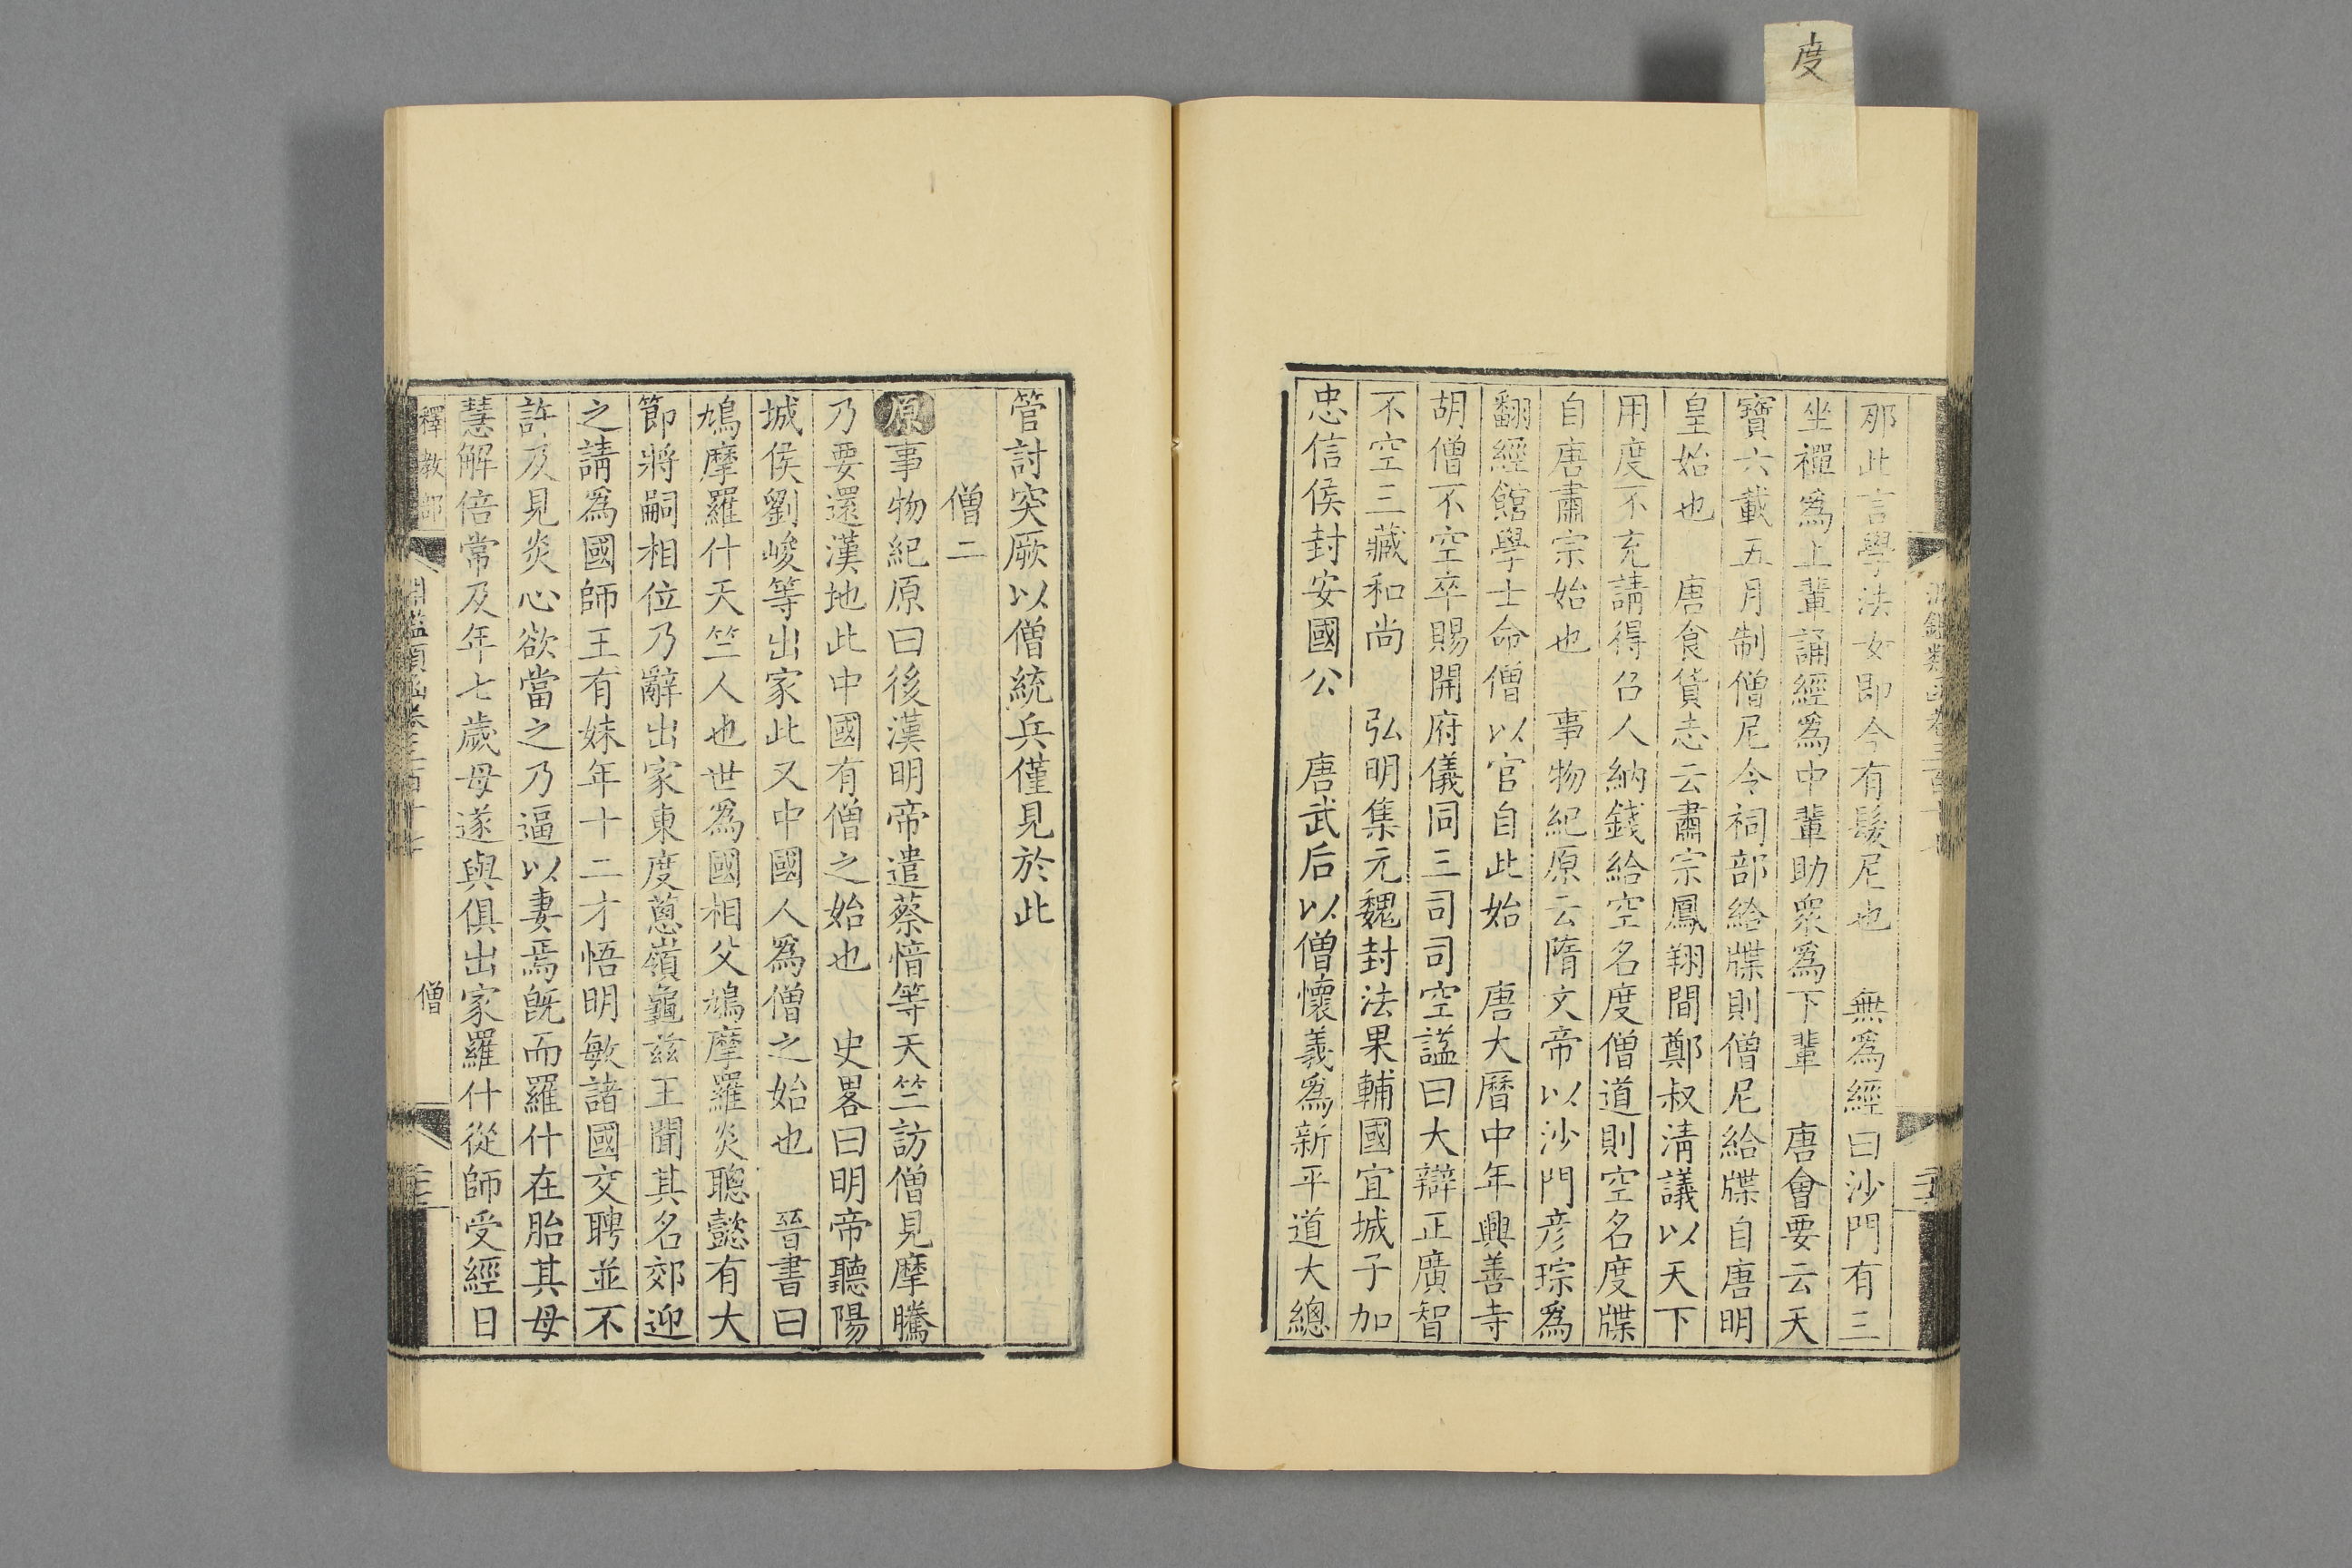 度
那此言學法女即今有髮尼也　無爲經曰沙門有三
坐禪爲上輩誦經爲中輩助衆爲下輩　唐會要云天
寶六載五月制僧尼令祠部給牒則僧尼給牒自唐明
皇始也　唐食貨志云肅宗鳳翔間鄭叔淸議以天下
用度不充請得召人納錢給空名度僧道則空名度牒
自唐肅宗始也　事物紀原云隋文帝以沙門彦琮爲
翻經館學士命僧以官自此始　唐大曆中年興善寺
胡僧不空卒賜開府儀同三司司空諡曰大辯正廣智
不空三藏和尚　弘明集元魏封法果輔國宜城子加
忠信侯封安國公　唐武后以僧懷義爲新平道大總
管討突厥以僧統兵僅見於此
僧二
原事物紀原曰後漢明帝遣蔡愔等天竺訪僧見摩騰
乃要還漢地此中國有僧之始也　史畧曰明帝聽陽
城侯劉峻等出家此又中國人爲僧之始也　晉書曰
鳩摩羅什天竺人也世爲國相父鳩摩羅炎聰懿有大
節將嗣相位乃辭出家東度蔥嶺龜茲王聞其名郊迎
之請爲國師王有妹年十二才悟明敏諸國交聘並不
許及見炎心欲當之乃逼以妻焉旣而羅什在胎其母
慧解倍常及年七歲母遂與俱出家羅什從師受經日
釋教部
淵鑑類函卷三百十七
僧